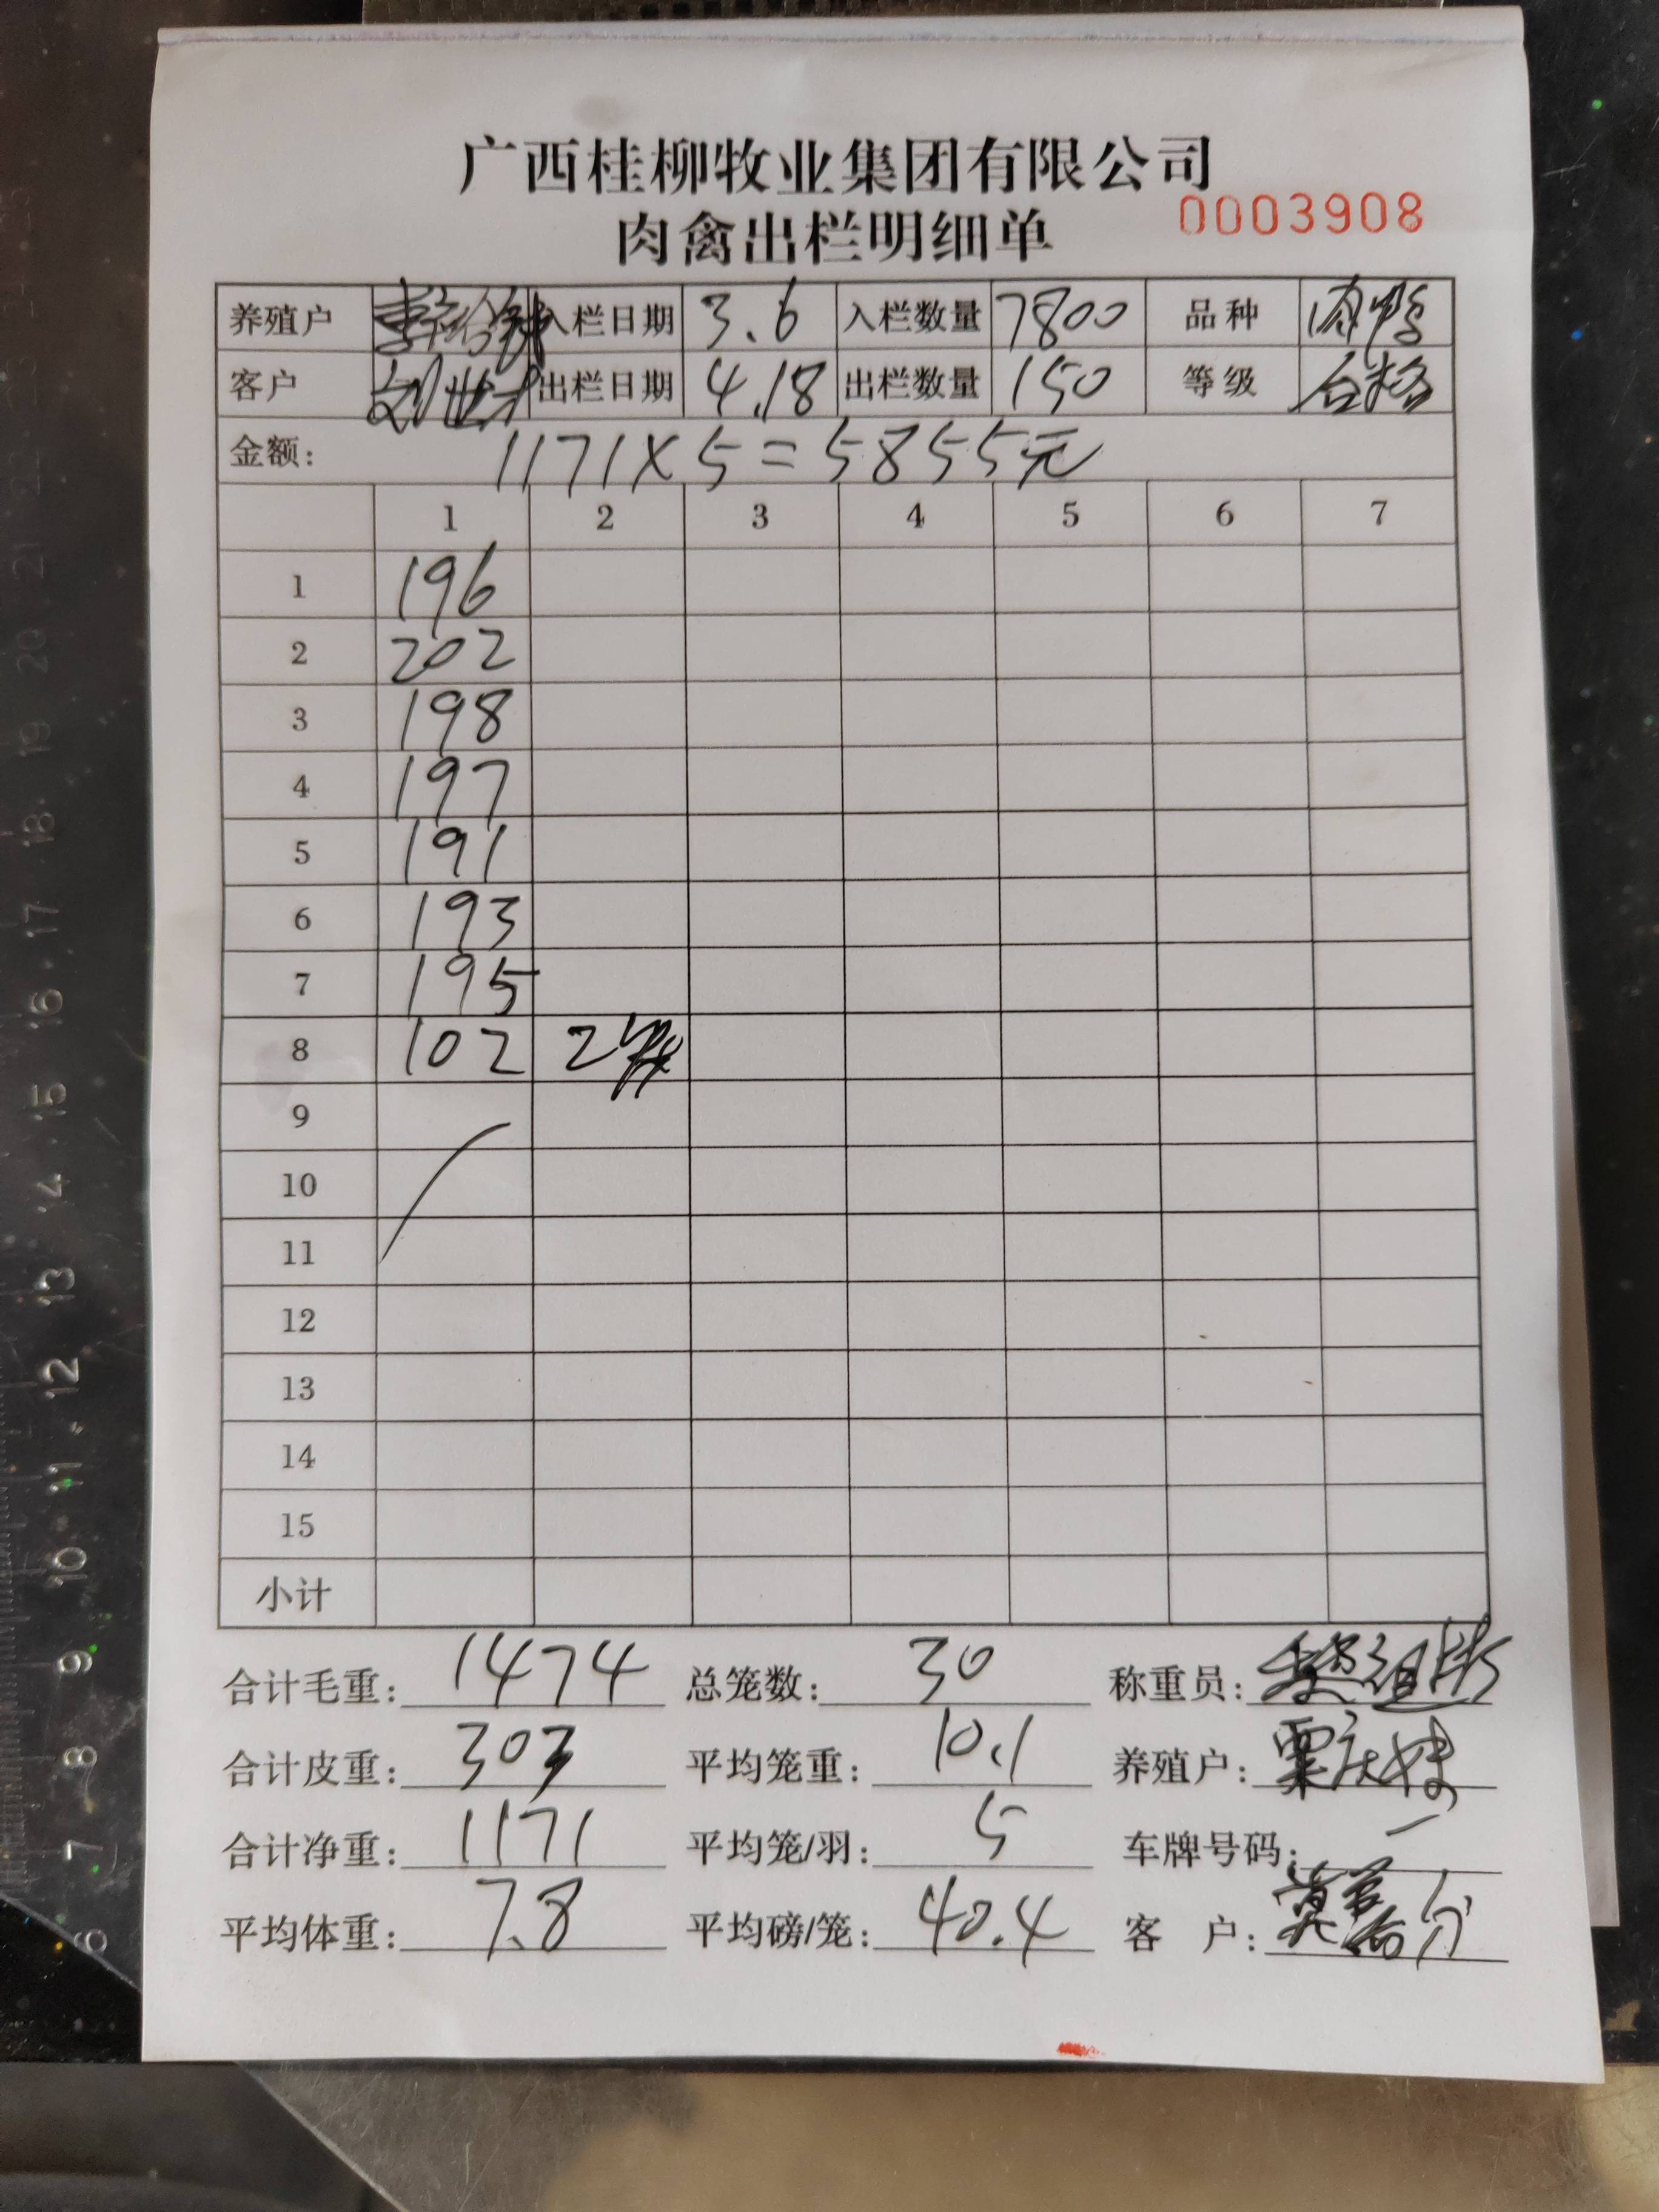 广西桂柳牧业集团有限公司
肉禽出栏明细单 0003908
养殖户 入栏日期 3.6 入栏数量 7800 品种 肉鸭
客户 出栏日期 4.18 出栏数量 150 等级 合格
金额: 1171×5=5855元
1 2 3 4 5 6 7
1 196
2 202
3 198
4 197
5 191
6 193
7 195
8 102 2
9
10
11
12
13
14
15
小计
合计毛重: 1474 总笼数: 30 称重员:
合计皮重: 303 平均笼重: 10.1 养殖户: 覃庆妹
合计净重: 1171 平均笼/羽: 5 车牌号码:
平均体重: 7.8 平均磅/笼: 40.4 客 户:
6 7 8 9 10 11 12 13 14 15 16 17 18 19 20 21 22